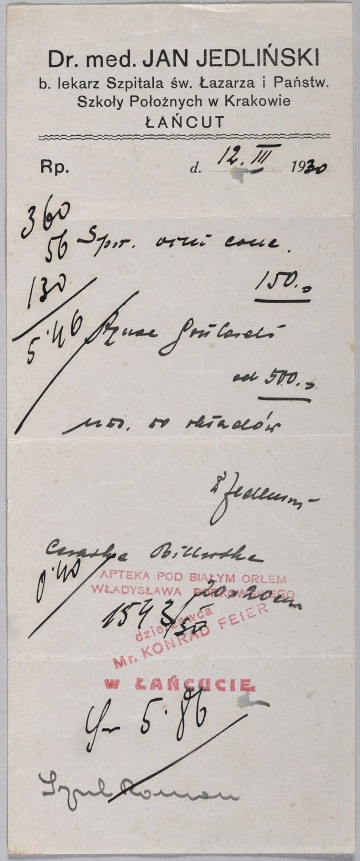 Dr. med. JAN JEDLIŃSKI
b. lekarz Szpitala św. Łazarza i Państw.
Szkoły Położnych w Krakowie
ŁAŃCUT
Rp.
d. 12. III 1930
360
56
130
5.46
Spir. vini conc.
150.0
Aquae Goulardi
ad 500.0
do okładów
0.40
APTEKA POD BIAŁYM ORŁEM
WŁADYSŁAWA
1543/30
dzierżawca
Mr. KONRAD FEIER
W ŁAŃCUCIE
5.86
Szpul Roman